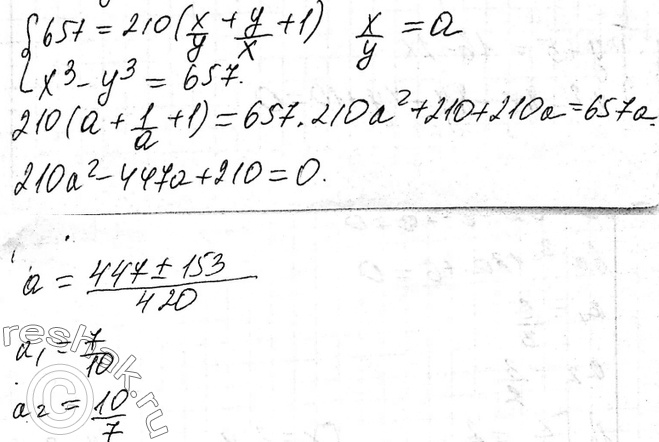 { 657 = 210 (x/y + y/x + 1)   x/y = a
{ x³ - y³ = 657.
210 (a + 1/a + 1) = 657. 210a² + 210 + 210a = 657a.
210a² - 447a + 210 = 0.
a = (447 ± 153)/420
a₁ = 7/10
a₂ = 10/7
reshak.ru